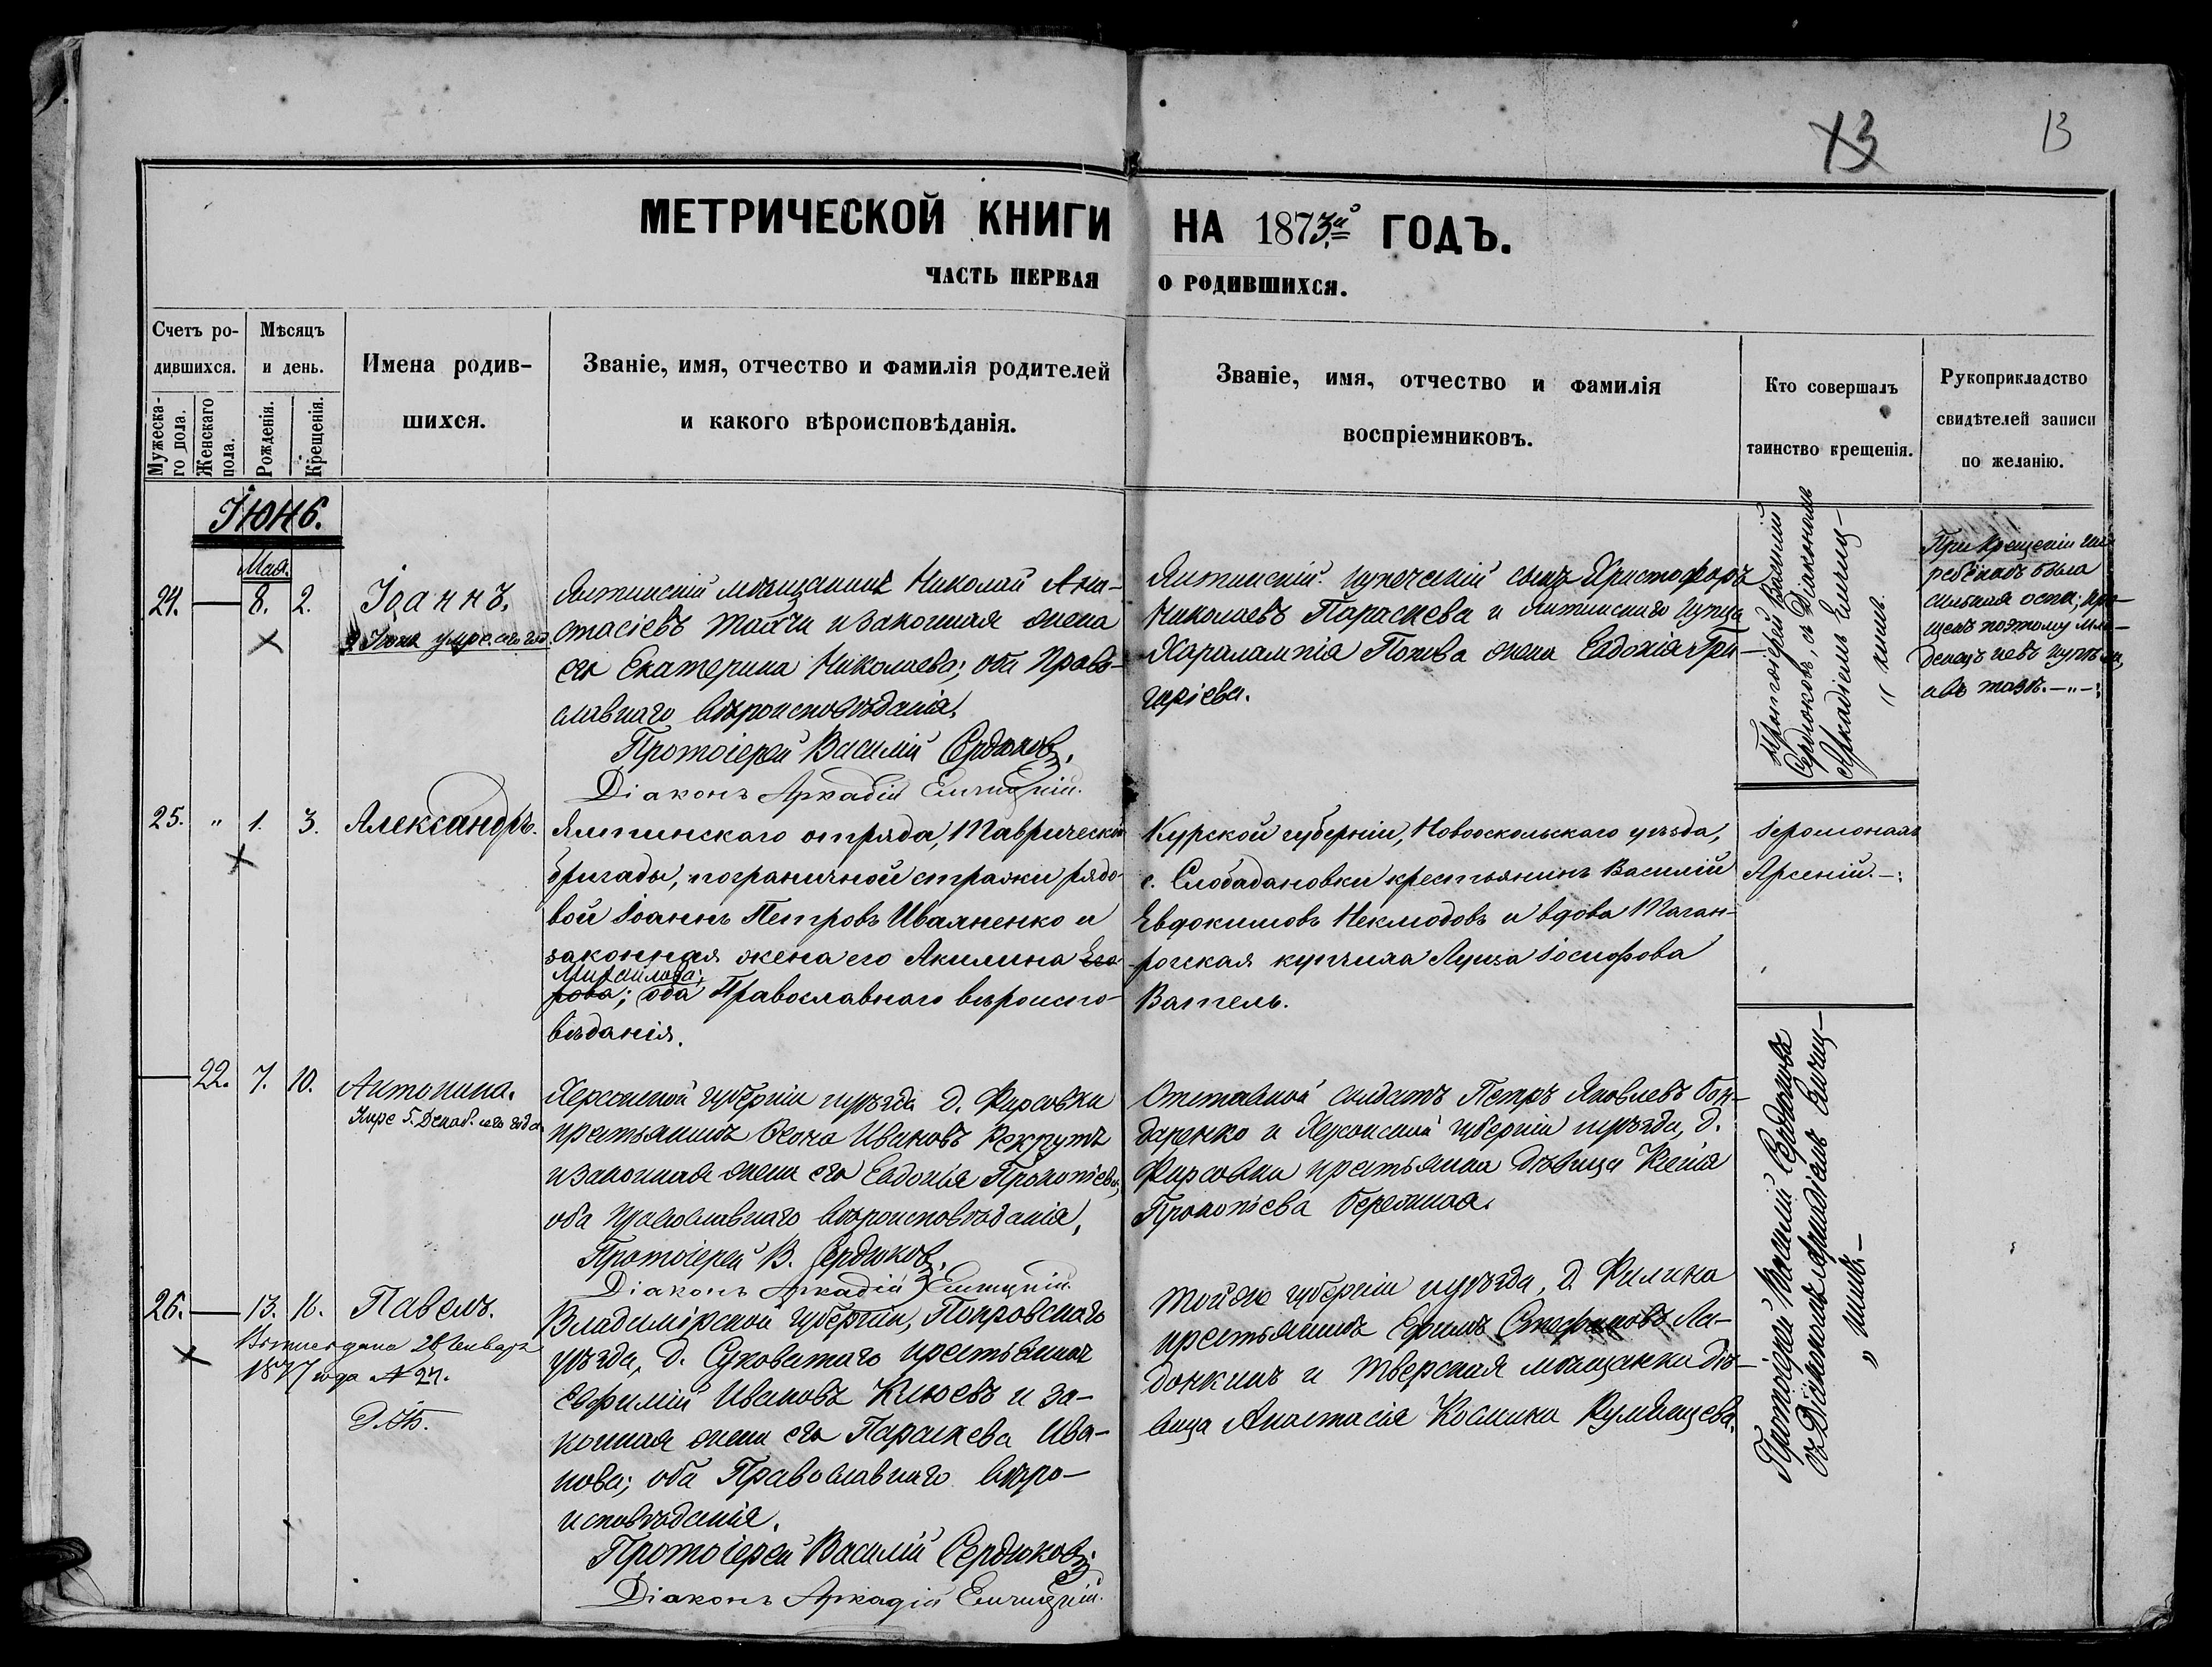 13
13
МЕТРИЧЕСКОЙ КНИГИ НА 1873й ГОДЪ.
ЧАСТЬ ПЕРВАЯ О РОДИВШИХСЯ.
Счетъ ро-
дившихся.
Мужеска-
го пола.
Женскаго
пола.
Мѣсяцъ
и день.
Рожденія.
Крещенія.
Имена родив-
шихся.
Званіе, имя, отчество и фамилія родителей
и какого вѣроисповѣданія.
Званіе, имя, отчество и фамилія
воспріемниковъ.
Кто совершалъ
таинство крещенія.
Рукоприкладство
свидѣтелей записи
по желанію.
Іюнь.
Мая.
24. 8. 2.
Іоаннъ.
9 Іюня умре сего год
Ялтинскій мѣщанинъ Николай Ана-
стасіевъ и законная жена
его Екатерина Николаева; оба Право-
славнаго вѣроисповѣданія.
Протоіерей Василій Сердюковъ.
Діаконъ Аркадій
Ялтинскій купеческій сынъ Христофоръ
Николаевъ Параскева и Ялтинскаго купца
Харалампія Попова жена Евдокія Гри-
горіева.
Протоіерей Василій
Сердюковъ, съ Діакономъ
Аркадіемъ
При крещеніи
ребёнкѣ была
сильная оспа; кре-
щенъ поэтому мла-
денецъ
25. " 1. 3.
Александръ.
Ялтинскаго отряда, Таврической
бригады, пограничной стражи рядо-
вой Іоаннъ Петровъ Иваненко и
законная жена его Акилина Его
Михайлова;
рова; оба Православнаго вѣроиспо-
вѣданія.
Курской губерніи, Новооскольскаго уѣзда,
с. Слободановки крестьянинъ Василій
Евдокимовъ Неклюдовъ и вдова Таган-
рогская купчиха Луиза Іосифова
Вательь.
Іеромонахъ
Арсеній.
22. 7. 10.
Антонина.
Умре 5. Декаб. сего года
Херсонской губерніи и уѣзда д. Фирсовки
крестьянинъ Ѳома Ивановъ Рекрутъ
и законная жена его Евдокія Прокопіева,
оба православнаго вѣроисповѣданія.
Протоіерей В. Сердюковъ.
Діаконъ Аркадій
Отставной солдатъ Петръ Яковлевъ Бон-
даренко и Херсонской губерніи и уѣзда, д.
Фирсовки крестьянка дѣвица Ксенія
Прокопіева Бережная.
Протоіерей Василій Сердюковъ
съ Діакономъ Аркадіемъ
26. 13. 16.
Павелъ.
Выписъ дана 26 Января
1877 года № 27.
Владимірской губерніи, Покровскаго
уѣзда, д. Суковатаго крестьянинъ
Евфимій Ивановъ Клюевъ и за-
конная жена его Параскева Ива-
нова; оба Православнаго вѣро-
исповѣданія.
Протоіерей Василій Сердюковъ.
Діаконъ Аркадій
Той же губерніи и уѣзда, д. Филина
крестьянинъ Ефимъ Стефановъ Ла-
донкинъ и Тверская мѣщанка дѣ-
вица Анастасія Космина Румянцева.